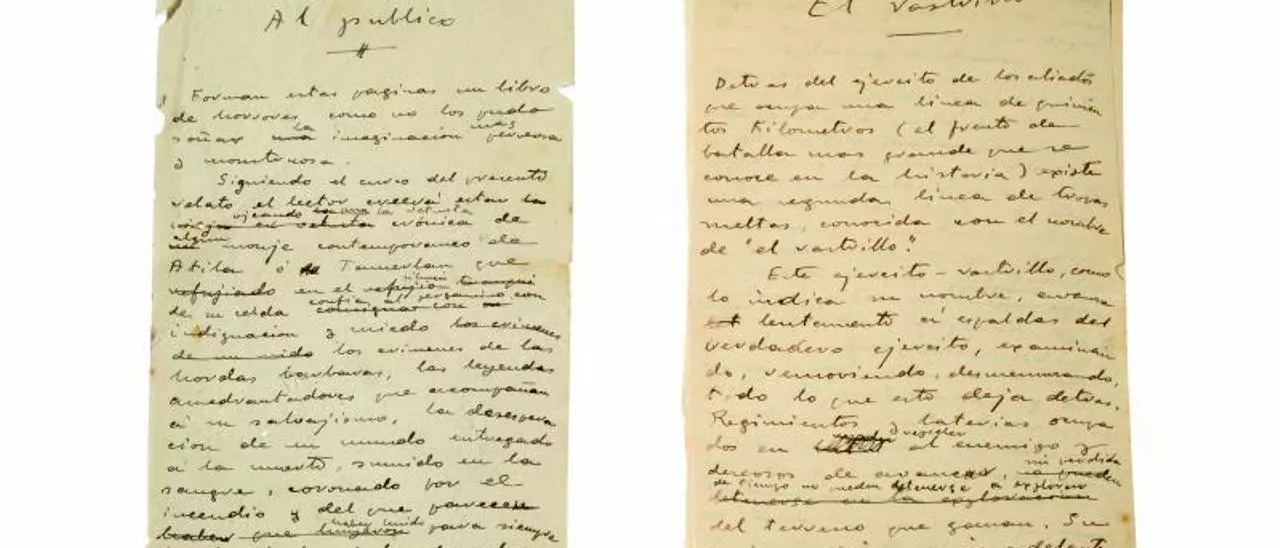 Al publico
Forman estas paginas un libro
de horrores como no los pudo
soñar una la imaginación mas perversa
y monstruosa.
Siguiendo el curso del presente
relato, el lector creerá estar la
ojeando la vetusta
en vetusta crónica de
algun
un monje contemporaneo de
Atila ó de Tamerlan que
refugiado en el silencio
de su celda confia al pergamino con
consignar con
indignacion y miedo los crimenes
de un miedo los crimenes de las
hordas barbaras, las leyendas
amedrantadoras que acompañan
á su salvajismo, la desespera
cion de un mundo entregado
á la muerte, sumido en la
sangre, coronado por el
incendio y del que parecen
haber huido
haber que para siempre
El rastrillo
Detras del ejercito de los aliados
que ocupa una linea de quinien
tos Kilometros (el frente de
batalla mas grande que se
conoce en la historia) existe
una segunda linea de tropas
sueltas, conocida con el nombre
de "el rastrillo".
Este ejercito-rastrillo, como
lo indica su nombre, avanza
lentamente á espaldas del
verdadero ejercito, examinan
do, removiendo, desmenuzando,
todo lo que esto deja detras.
Regimientos y baterias ocupa
dos en al enemigo y
deseosos de avanzar, sin perdida
de tiempo no pueden detenerse á explorar
detenerse en la exploracion
del terreno que ganan. Su